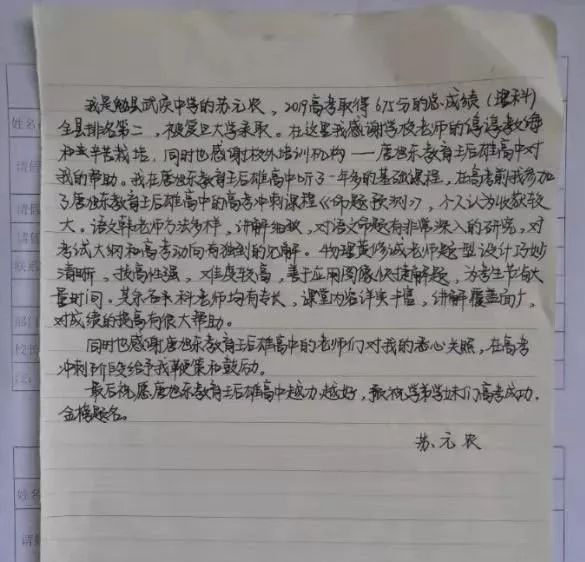 我是勉县武侯中学的苏元农，2019高考取得675分的总成绩（理科）
全县排名第二，被复旦大学录取。在这里我感谢学校老师的谆谆教诲
和辛苦栽培，同时也感谢校外培训机构——唐旭东教育王后雄高中对
我的帮助。我在唐旭东教育王后雄高中听了一年多的基础课程，在高考前我参加
了唐旭东教育王后雄高中的高考冲刺课程《命题预测》，个人认为收获较
大。语文韩老师方法多样，讲解细致，对语文命题有非常深入的研究，对
考试大纲和高考动向有独到的见解。物理黄修诚老师题型设计巧妙
清晰，拔高性强，难度较高，善于应用图像快捷解题，为考生节省大
量时间。其余各科老师均有专长，课堂内容详实丰富，讲解覆盖面广，
对成绩的提高有很大帮助。
同时也感谢唐旭东教育王后雄高中的老师们对我的悉心关照，在高考
冲刺阶段给予我鞭策和鼓励。
最后祝愿唐旭东教育王后雄高中越办越好，敬祝学弟学妹们高考成功，
金榜题名。
苏元农
姓名
请假
请假
请假
联系
部门
校
注
姓名
请